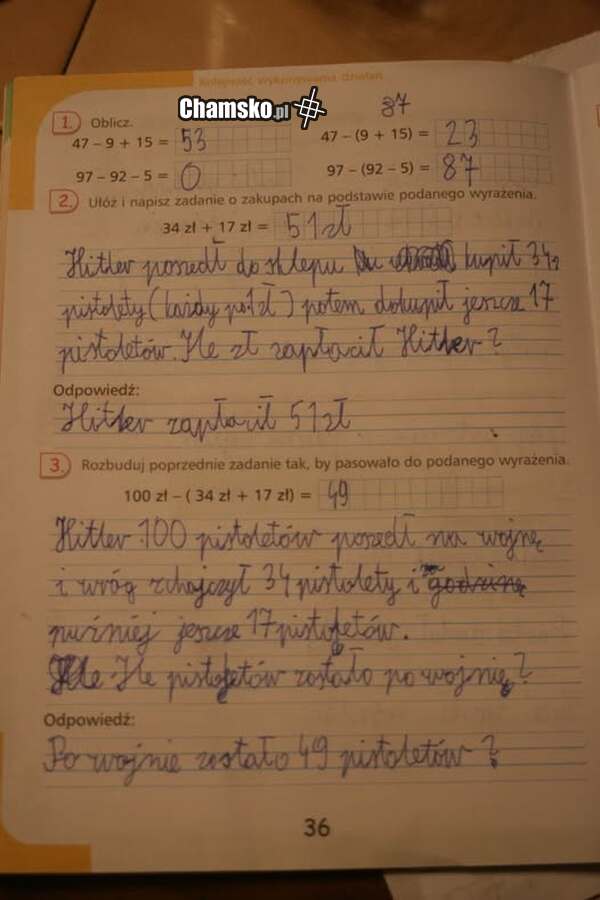 Kolejność wykonywania działań
Chamsko.pl
37
1. Oblicz.
47 – 9 + 15 = 53
47 – (9 + 15) = 23
97 – 92 – 5 = 0
97 – (92 – 5) = 87
2. Ułóż i napisz zadanie o zakupach na podstawie podanego wyrażenia.
34 zł + 17 zł = 51 zł
Hitler poszedł do sklepu kupił 34
pistolety (każdy po 1 zł) potem dokupił jeszcze 17
pistoletów. Ile zł zapłacił Hitler?
Odpowiedź:
Hitler zapłacił 51 zł
3. Rozbuduj poprzednie zadanie tak, by pasowało do podanego wyrażenia.
100 zł – ( 34 zł + 17 zł) = 49
Hitler 100 pistoletów poszedł na wojnę
i wróg zhajczył 34 pistolety i za godzinę
puźniej jeszcze 17 pistoletów.
Ile pistoletów zostało po wojnie?
Odpowiedź:
Po wojnie zostało 49 pistoletów?
36